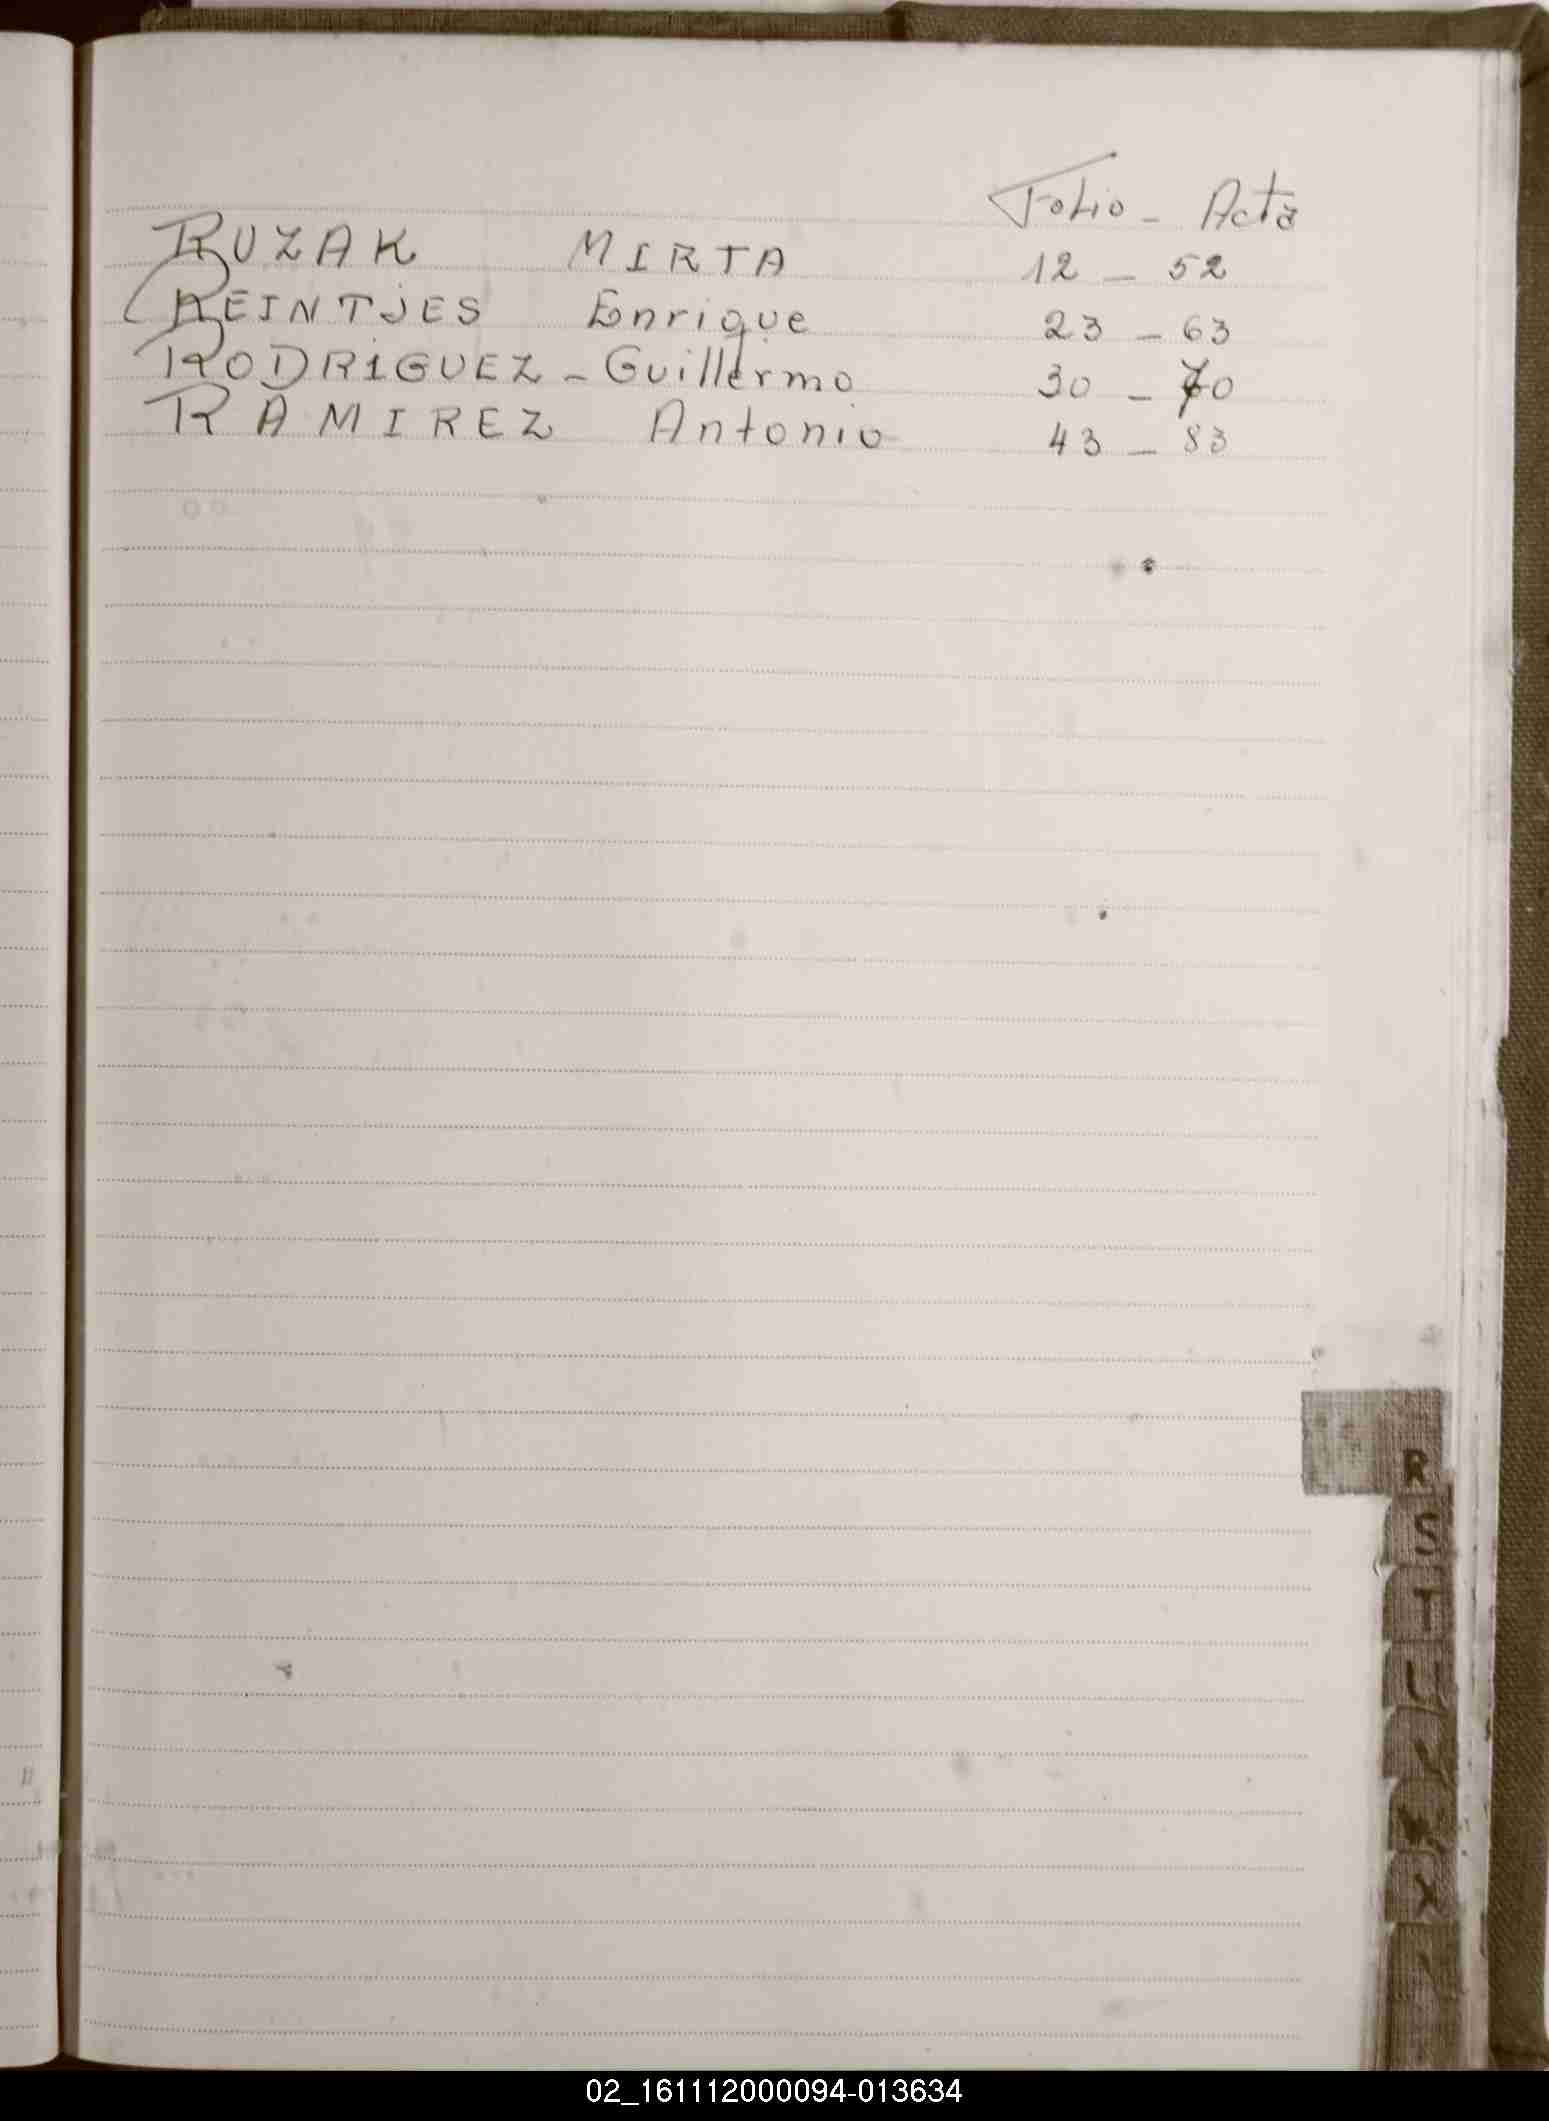 Folio - Acta
RUZAK MIRTA 12 - 52
REINTJES Enrique 23 - 63
RODRIGUEZ - Guillermo 30 - 70
RAMIREZ Antonio 43 - 83
R
S
T
U
X
02_161112000094-013634